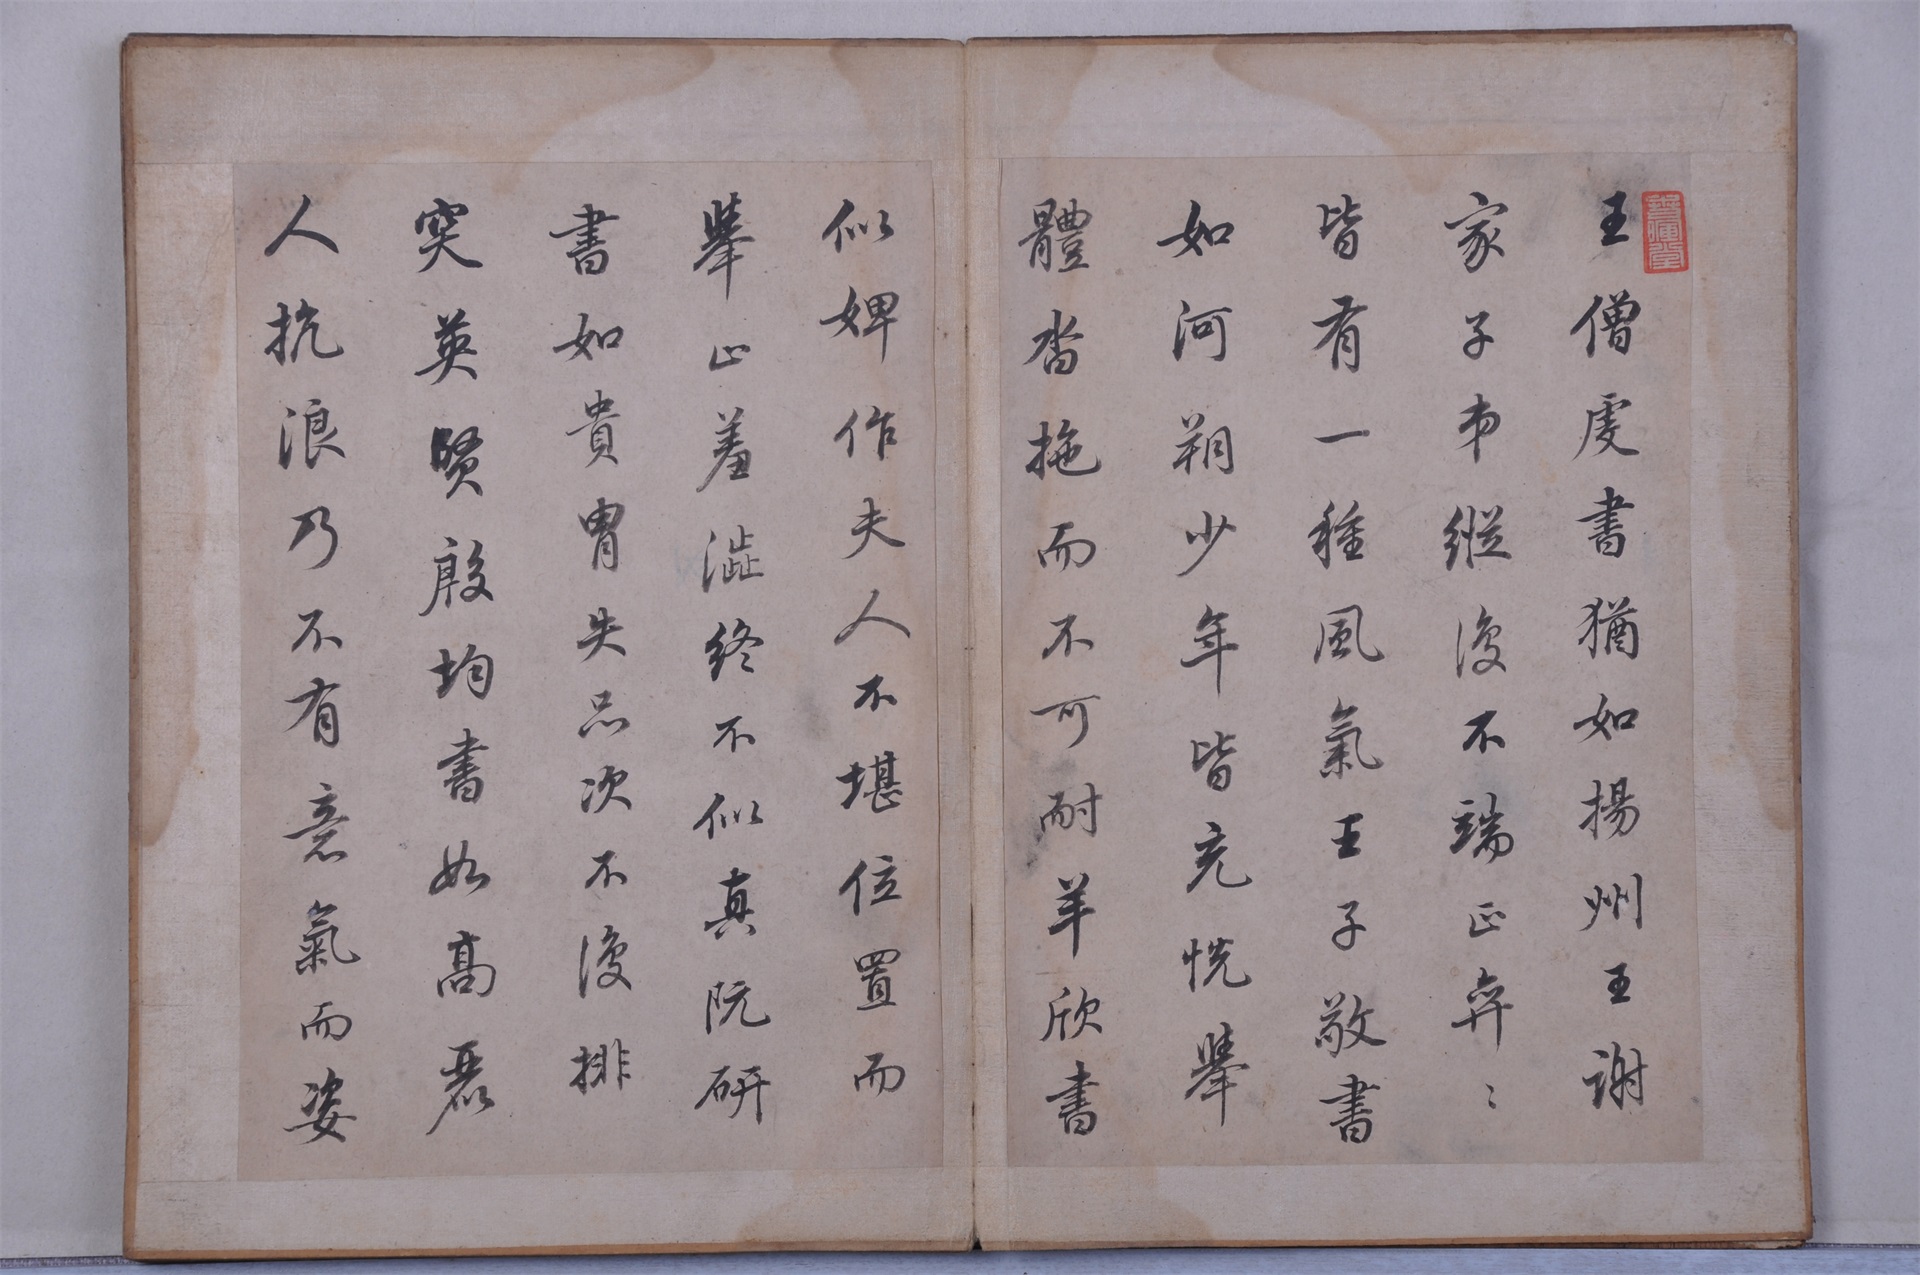 王僧虔書猶如揚州王謝
家子弟縱復不端正奕〻
皆有一種風氣王子敬書
如河朔少年皆充悅舉
體沓拖而不可耐羊欣書
似婢作夫人不堪位置而
舉止羞澁終不似真阮研
書如貴胄失品次不復排
突英賢殷均書如高麗
人抗浪乃不有意氣而姿